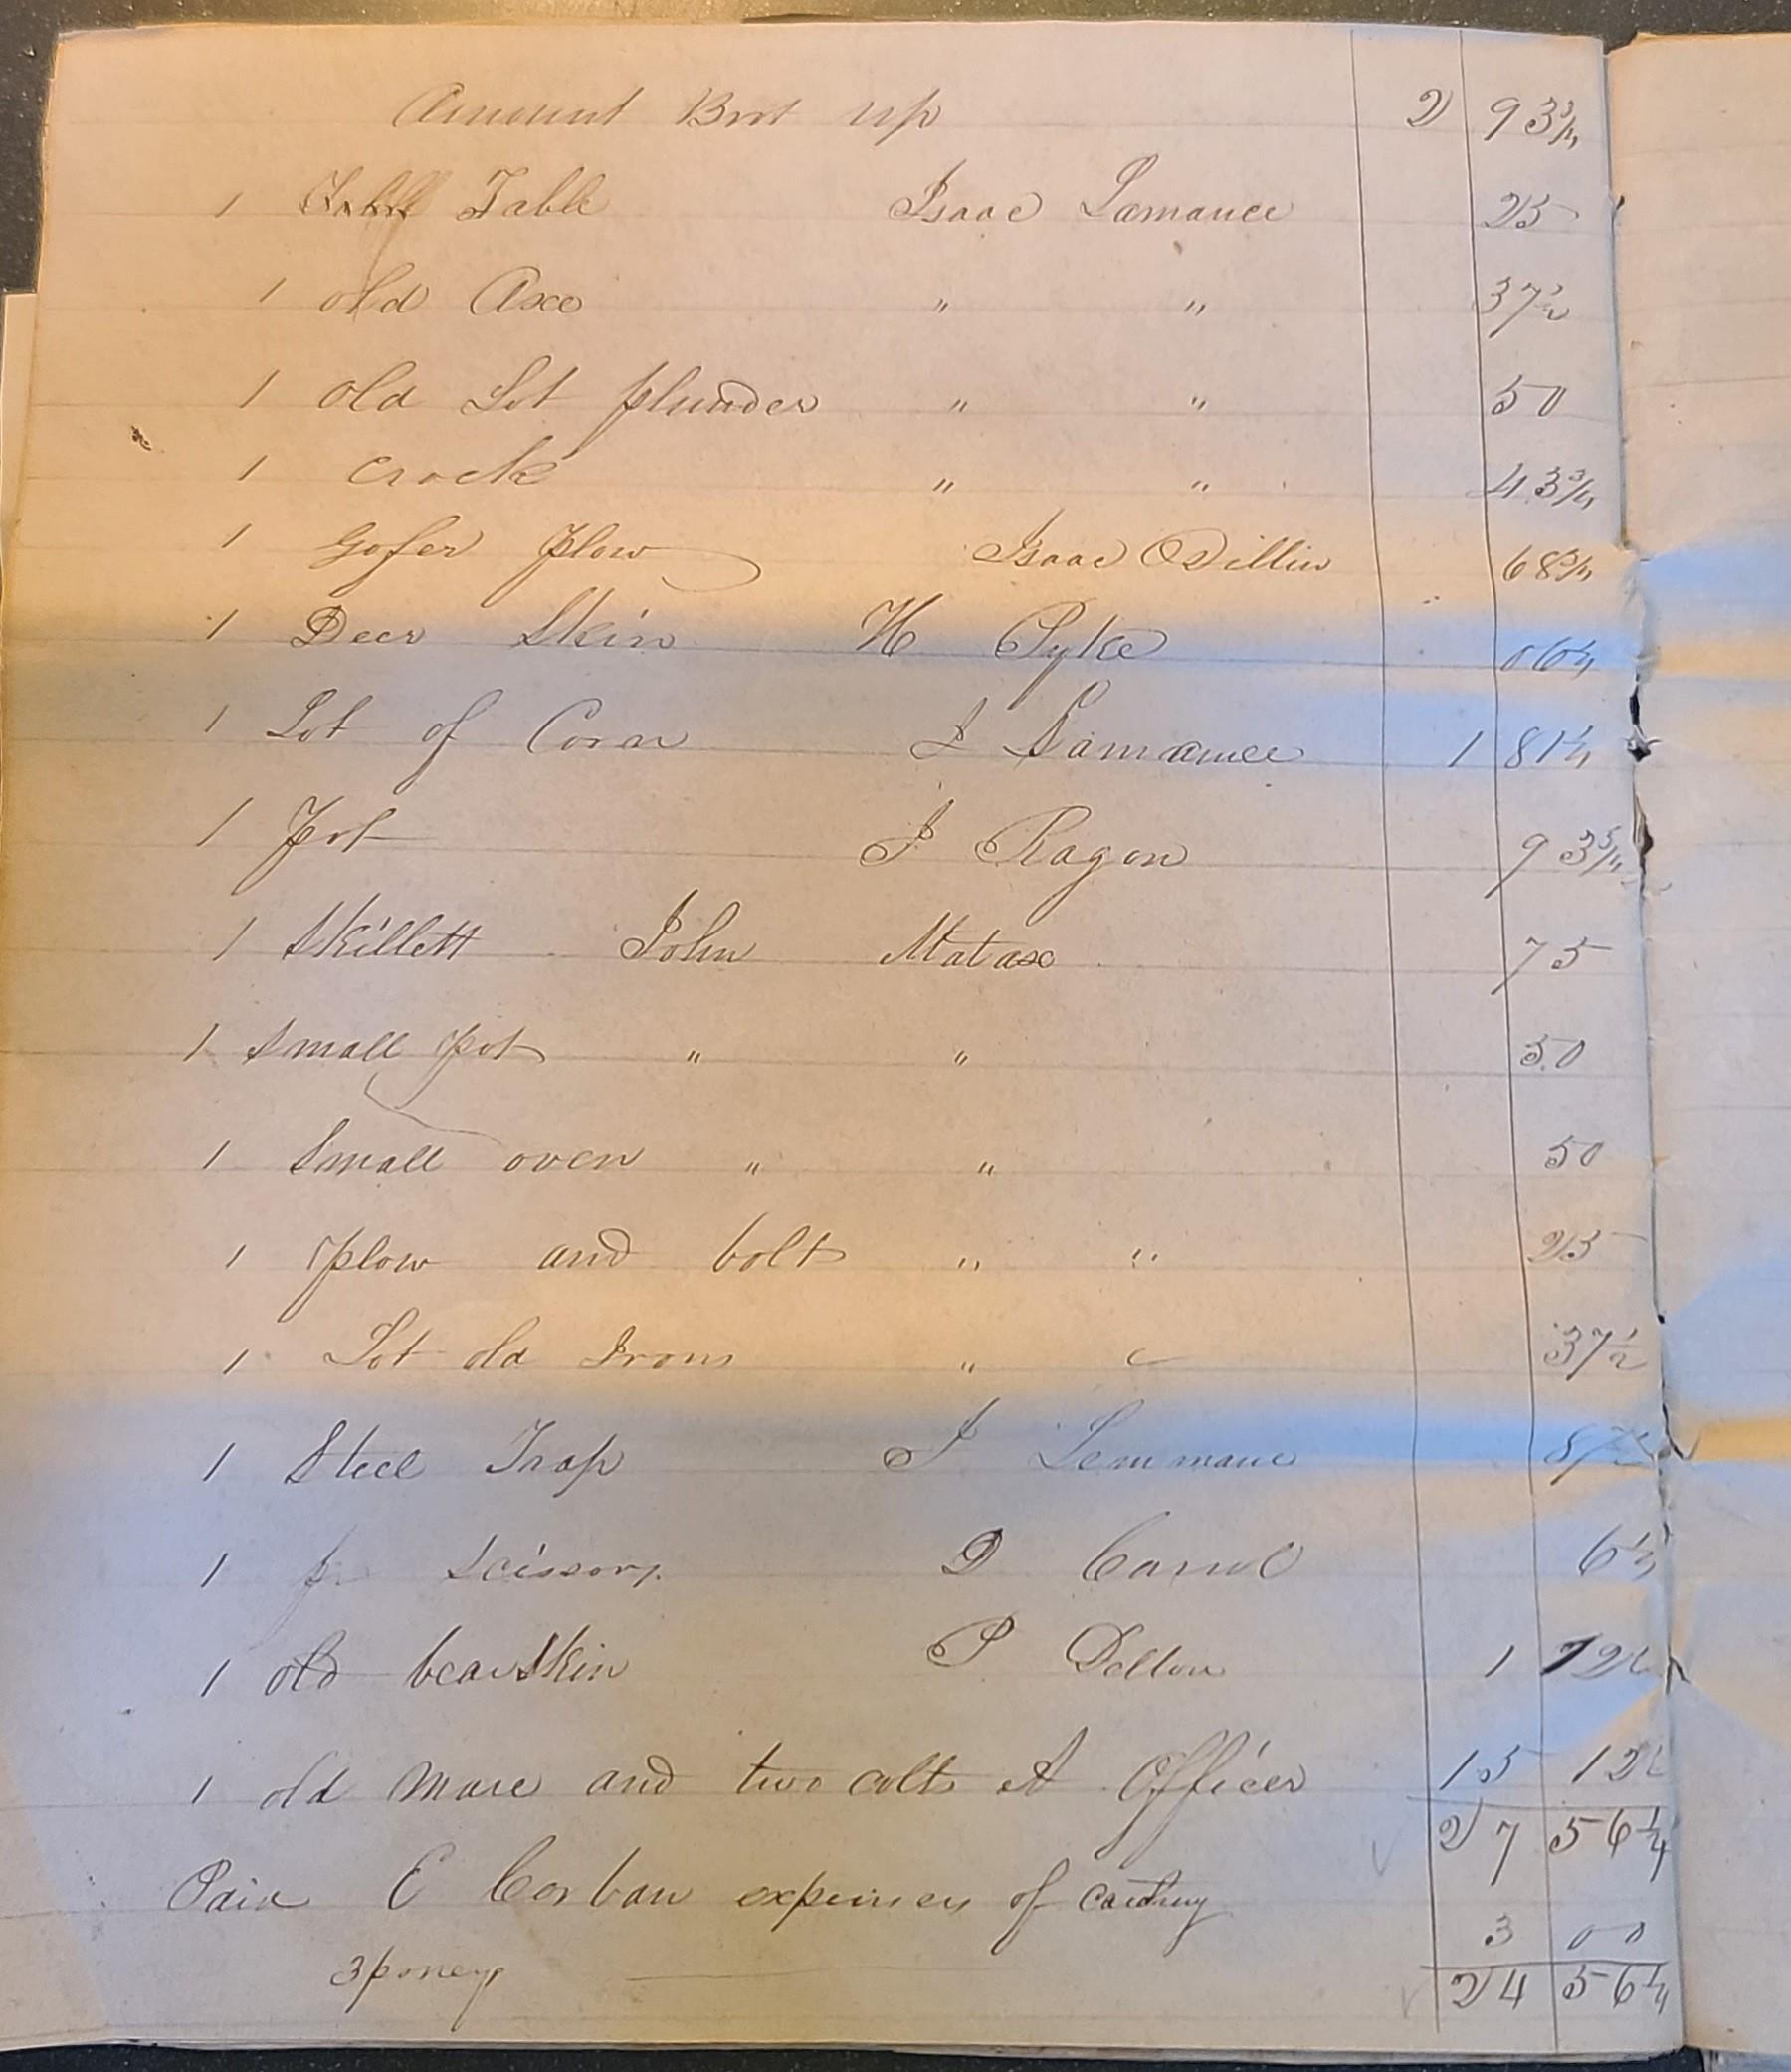 Amount Brot up 2 93 3/4
1 Table Table Isaac Lamance 25
1 old Axe " " 37 1/2
1 old Lot plunder " " 50
1 Crock " " 43 3/4
1 Gofer plow Isaac Dillin 68 3/4
1 Deer Skin H Pyke 06 1/4
1 Lot of Corn I Lamance 1 81 1/4
1 Pot J Ragon 93 3/4
1 Skillett John Matax 75
1 Small pot " " 50
1 Small oven " " 50
1 plow and bolt " " 25
1 Lot old Irons " " 37 1/2
1 Steel Trap I Lemmanc 87 1/2
1 pr Scissors D Carrol 6 1/4
1 old bearskin P Delton 1 12 1/2
1 old Mare and two colts A Officer 15 12 1/2
27 56 1/4
Paid E Corban expenses of
3 poneys 3 00
24 56 1/4